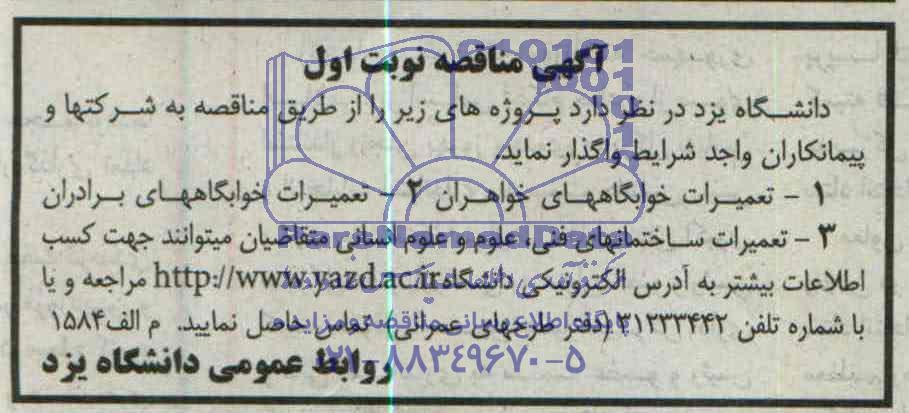 آگهی مناقصه نوبت اول
دانشگاه یزد در نظر دارد پروژه های زیر را از طریق مناقصه به شرکتها و
پیمانکاران واجد شرایط واگذار نماید.
۱ - تعمیرات خوابگاههای خواهران ۲ - تعمیرات خوابگاههای برادران
۳ - تعمیرات ساختمانهای فنی، علوم و علوم انسانی متقاضیان میتوانند جهت کسب
اطلاعات بیشتر به آدرس الکترونیکی دانشگاه http://www.yazd.ac.ir مراجعه و یا
با شماره تلفن ۳۱۲۳۳۴۴۲ (دفتر طرحهای عمرانی) تماس حاصل نمایید. م الف ۱۵۸۴
روابط عمومی دانشگاه یزد
۰۲۱-۸۸۳۴۹۶۷۰-۵